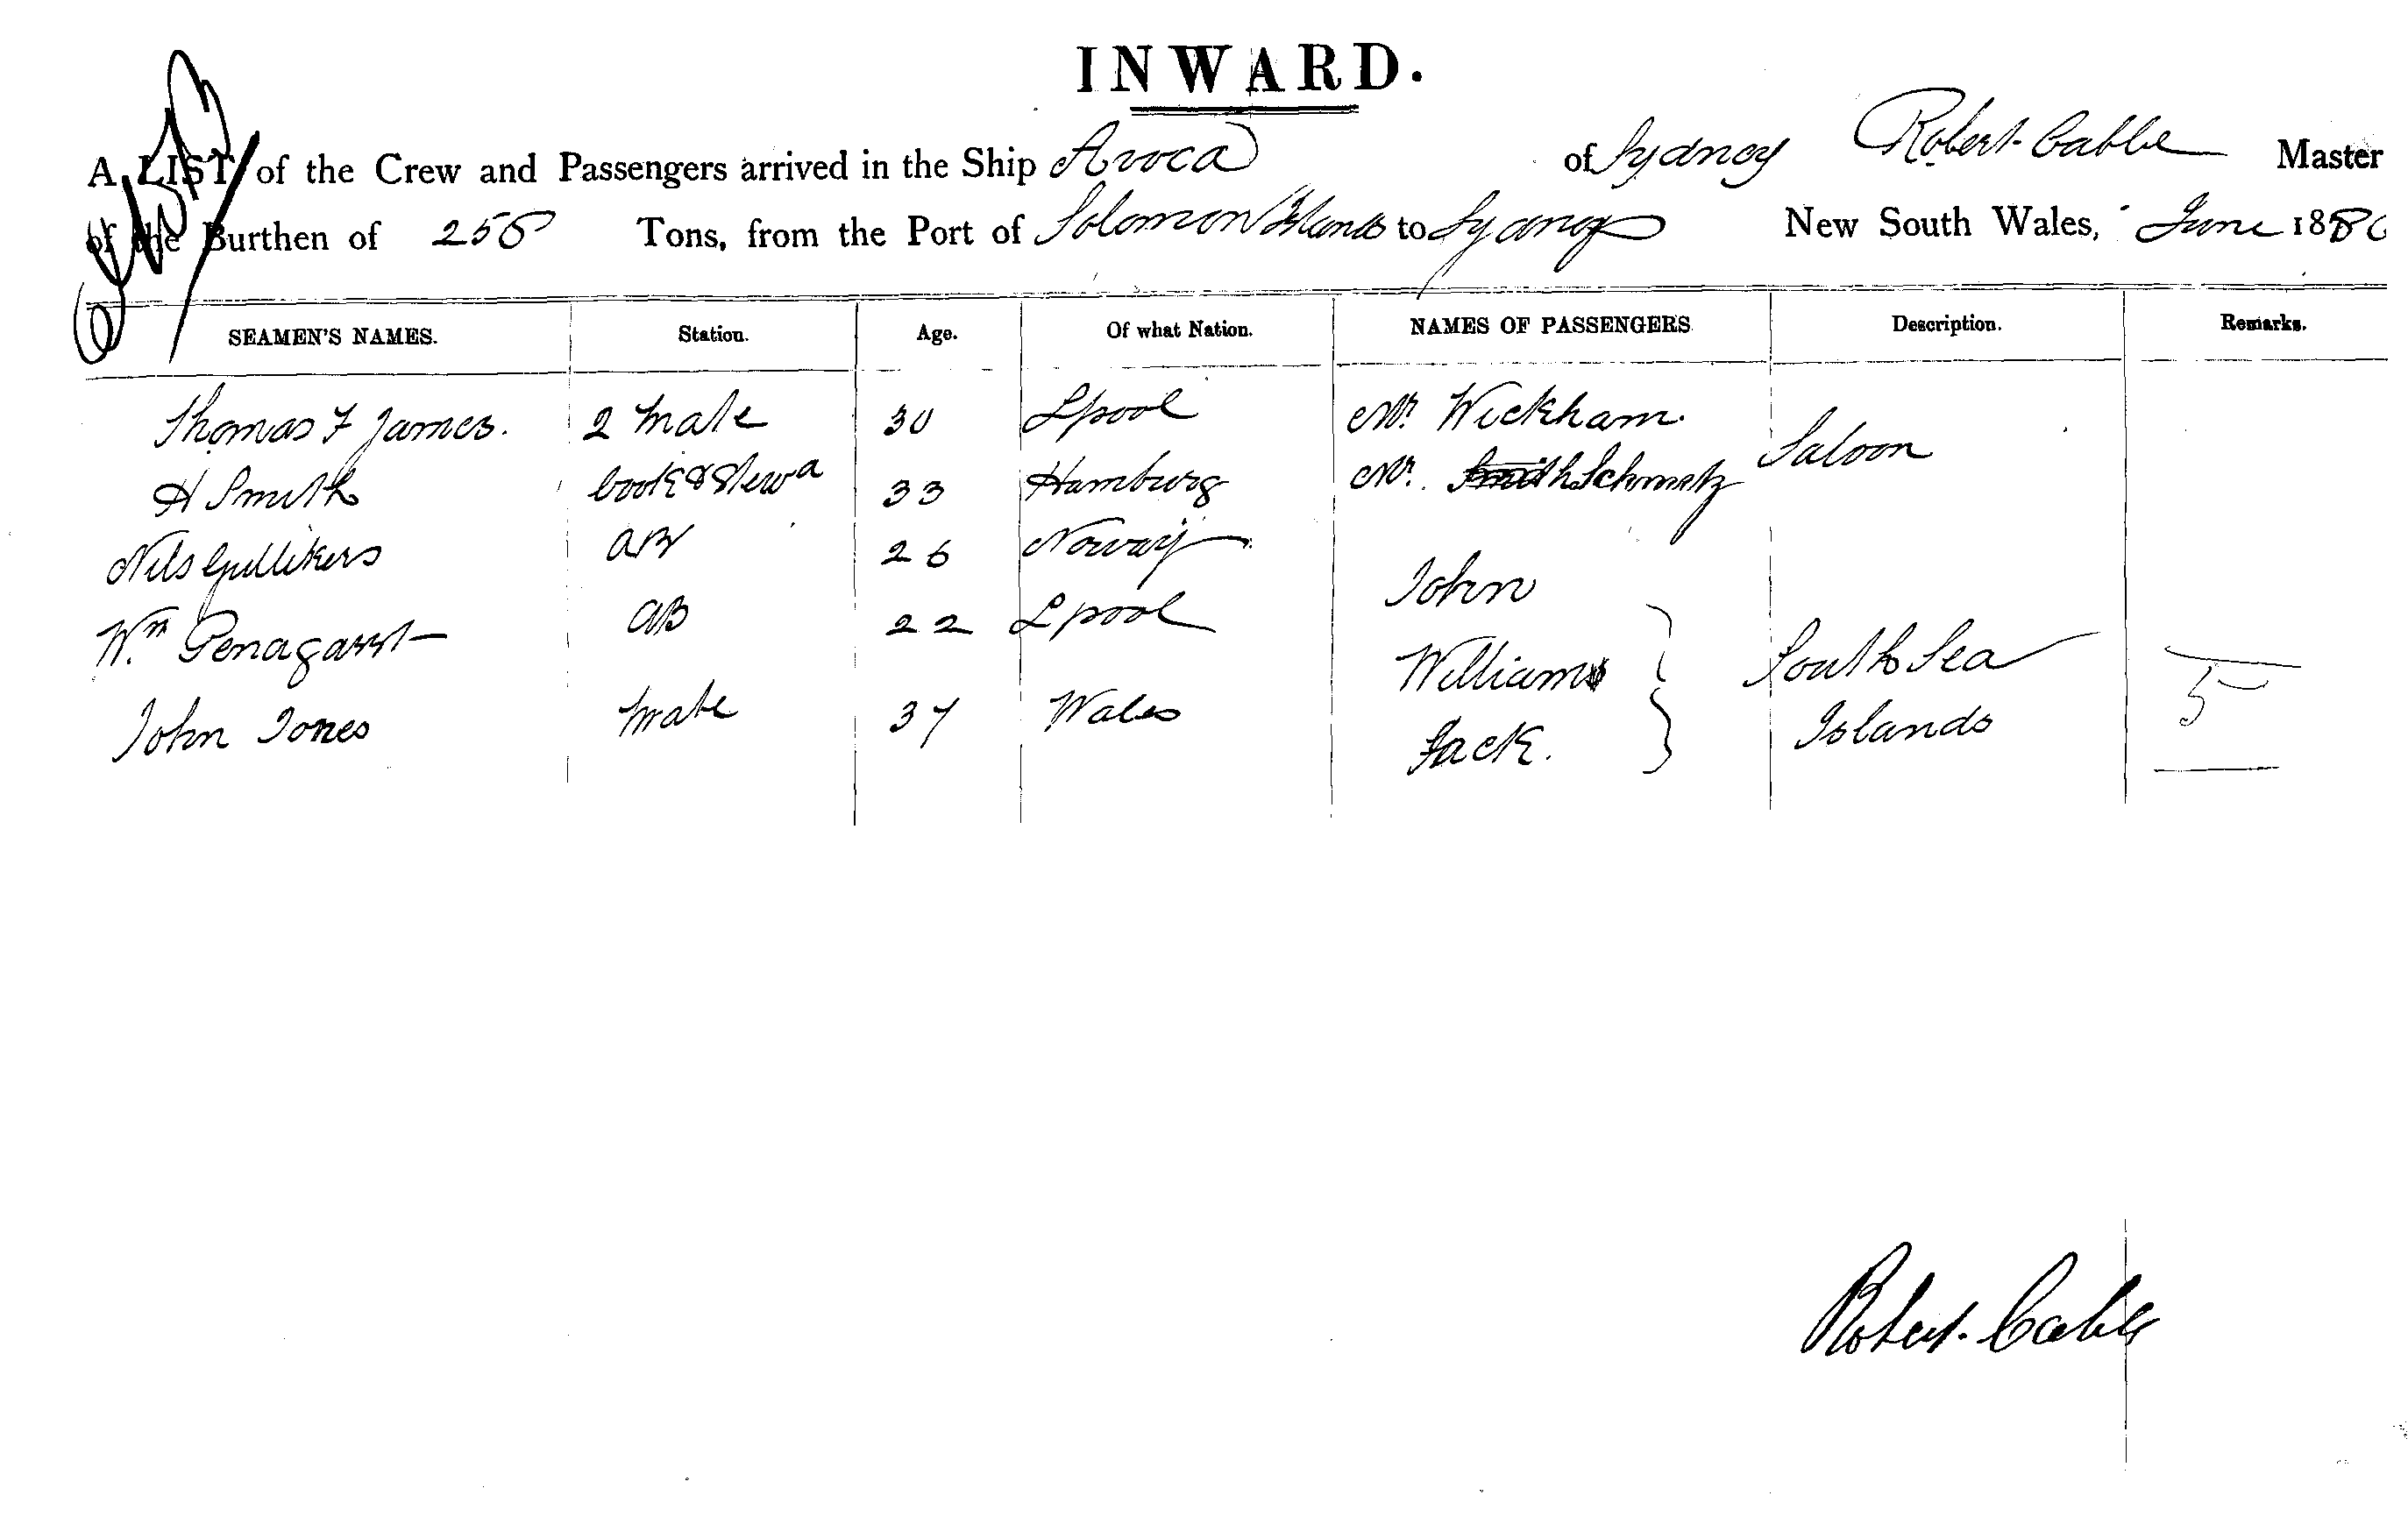 INWARD.
A LIST of the Crew and Passengers arrived in the Ship Avoca of Sydney Robert Cable Master
of the Burthen of 255 Tons, from the Port of Solomon Islands to Sydney New South Wales, June 188
SEAMEN'S NAMES. Station. Age. Of what Nation. NAMES OF PASSENGERS Description. Remarks.
Thomas F James. 2 Mate 30 Lpool Mr. Wickham. Saloon
H Smith Cook & Stewd 33 Hamburg Mr. Schmitz
Nils Gullikers AB 26 Norway John
Wm AB 22 Lpool William South Sea
John Jones Mate 37 Wales Jack. Islands 5
Robert Cable